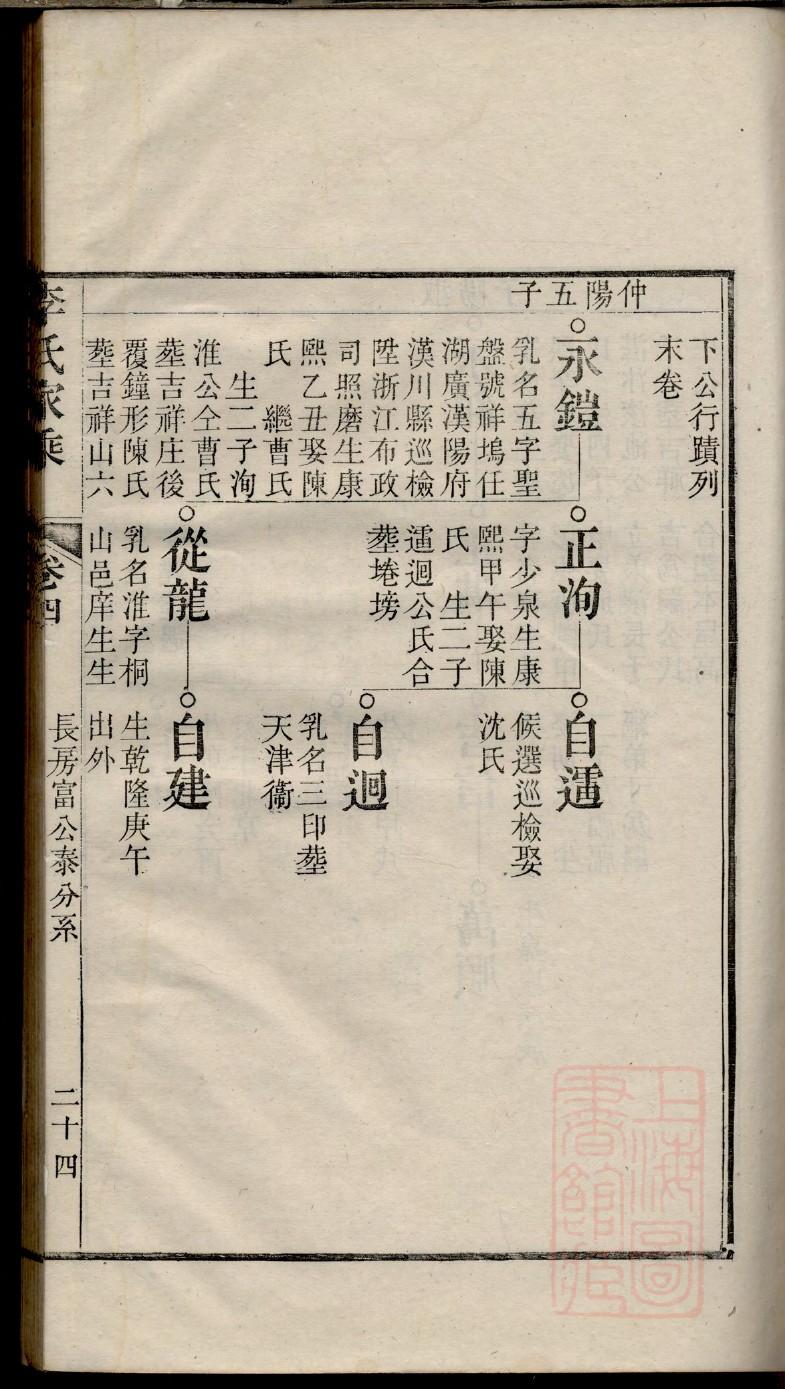 下公行蹟列
末卷
仲陽五子
永鎧
乳名五字聖
盤號祥塢任
湖廣漢陽府
漢川縣巡檢
陞浙江布政
司照磨生康
熙乙丑娶陳
氏　繼曹氏
生二子洵
淮公仝曹氏
塟吉祥庄後
覆鐘形陳氏
塟吉祥山六
正洵
字少泉生康
熙甲午娶陳
氏　生二子
迴公氏合
塟埢塝
從龍
乳名淮字桐
山邑庠生生
自
候選巡檢娶
沈氏
自迴
乳名三印塟
天津衞
自建
生乾隆庚午
出外
李氏家乘
卷四
長房富公泰分系
二十四
上海圖書館藏